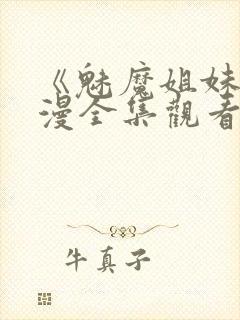 《魅魔姐妹
漫全集觀看
牛真子